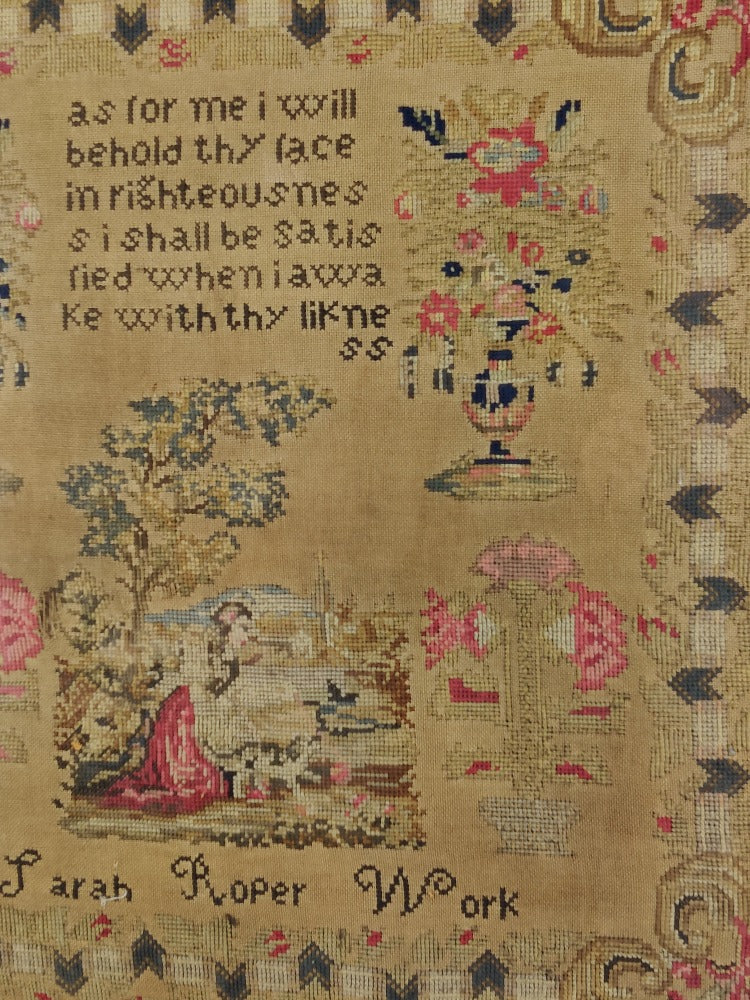 as for me i will
behold thy face
in righteousnes
s i shall be satis
fied when i awa
ke with thy likne
ss
Sarah Roper Work